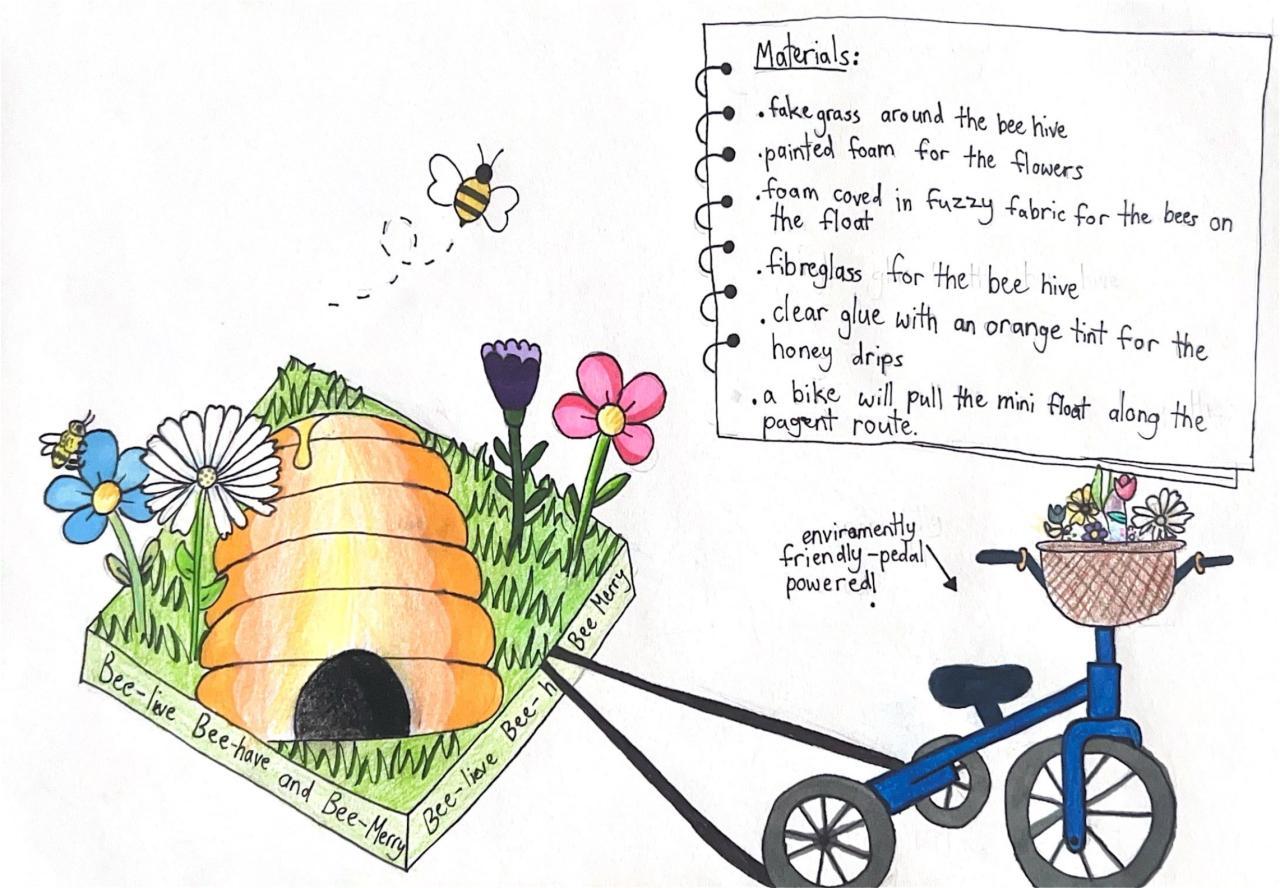 Materials:
. fake grass around the bee hive
. painted foam for the flowers
. foam coved in fuzzy fabric for the bees on
the float
. fibreglass for the bee hive
. clear glue with an orange tint for the
honey drips
. a bike will pull the mini float along the
pagent route.
enviramently
friendly-pedal
powered!
Bee-lieve Bee-have and Bee-Merry
Bee-lieve Bee-h Bee Merry